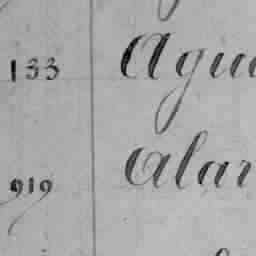 133 Agu
919 Alar